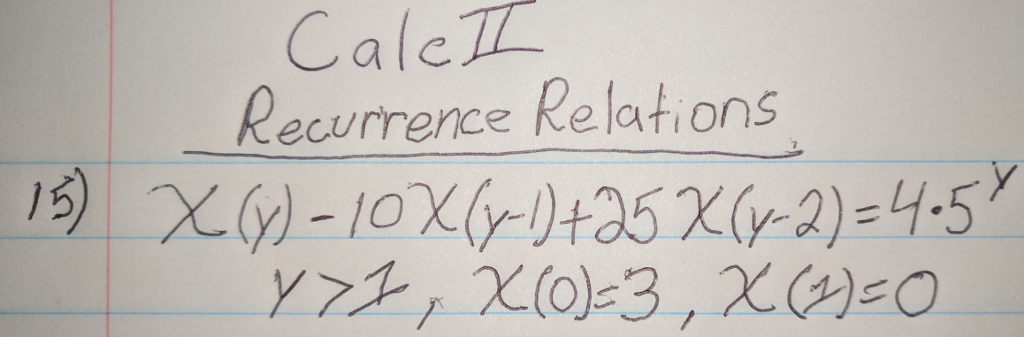 Calc II
Recurrence Relations
15) X(y)-10X(y-1)+25X(y-2)=4·5^y
y>1, X(0)=3, X(1)=0